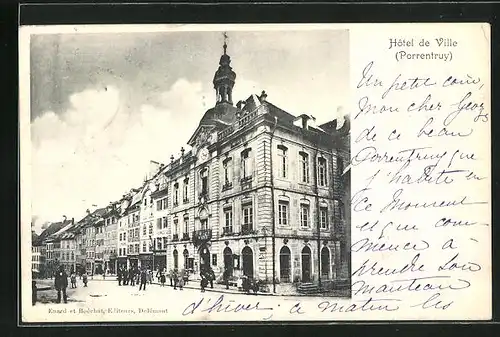 Hôtel de Ville
(Porrentruy)
Un petit coin,
mon cher Georg
de ce beau
Porrentruy que
j'habite en
ce moment
et qui com-
mence à
prendre son
manteau
d'h
Enard et Boéchat, Editeurs, Delémont